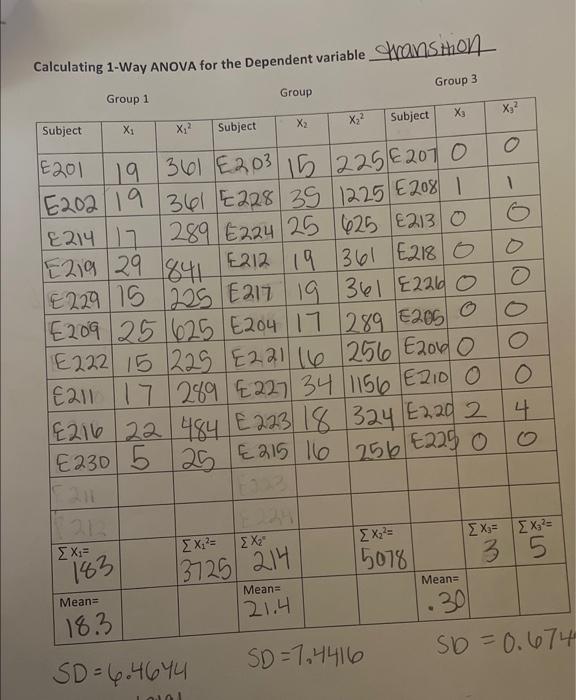 Calculating 1-Way ANOVA for the Dependent variable transition
Group 1 Group Group 3
Subject X₁ X₁² Subject X₂ X₂² Subject X₃ X₃²
E201 19 361 E203 15 225 E207 0 0
E202 19 361 E228 35 1225 E208 1 1
E214 17 289 E224 25 625 E213 0 0
E219 29 841 E212 19 361 E218 0 0
E229 15 225 E217 19 361 E226 0 0
E209 25 625 E204 17 289 E205 0 0
E222 15 225 E221 16 256 E206 0 0
E211 17 289 E227 34 1156 E210 0 0
E216 22 484 E223 18 324 E220 2 4
E230 5 25 E215 16 256 E225 0 0
E211 E223
E212 E224
∑X₁= ∑X₁²= ∑X₂= ∑X₂²= ∑X₃= ∑X₃²=
183 3725 214 5078 3 5
Mean= Mean= Mean=
18.3 21.4 .30
SD=6.4644 SD=7.4416 SD=0.674